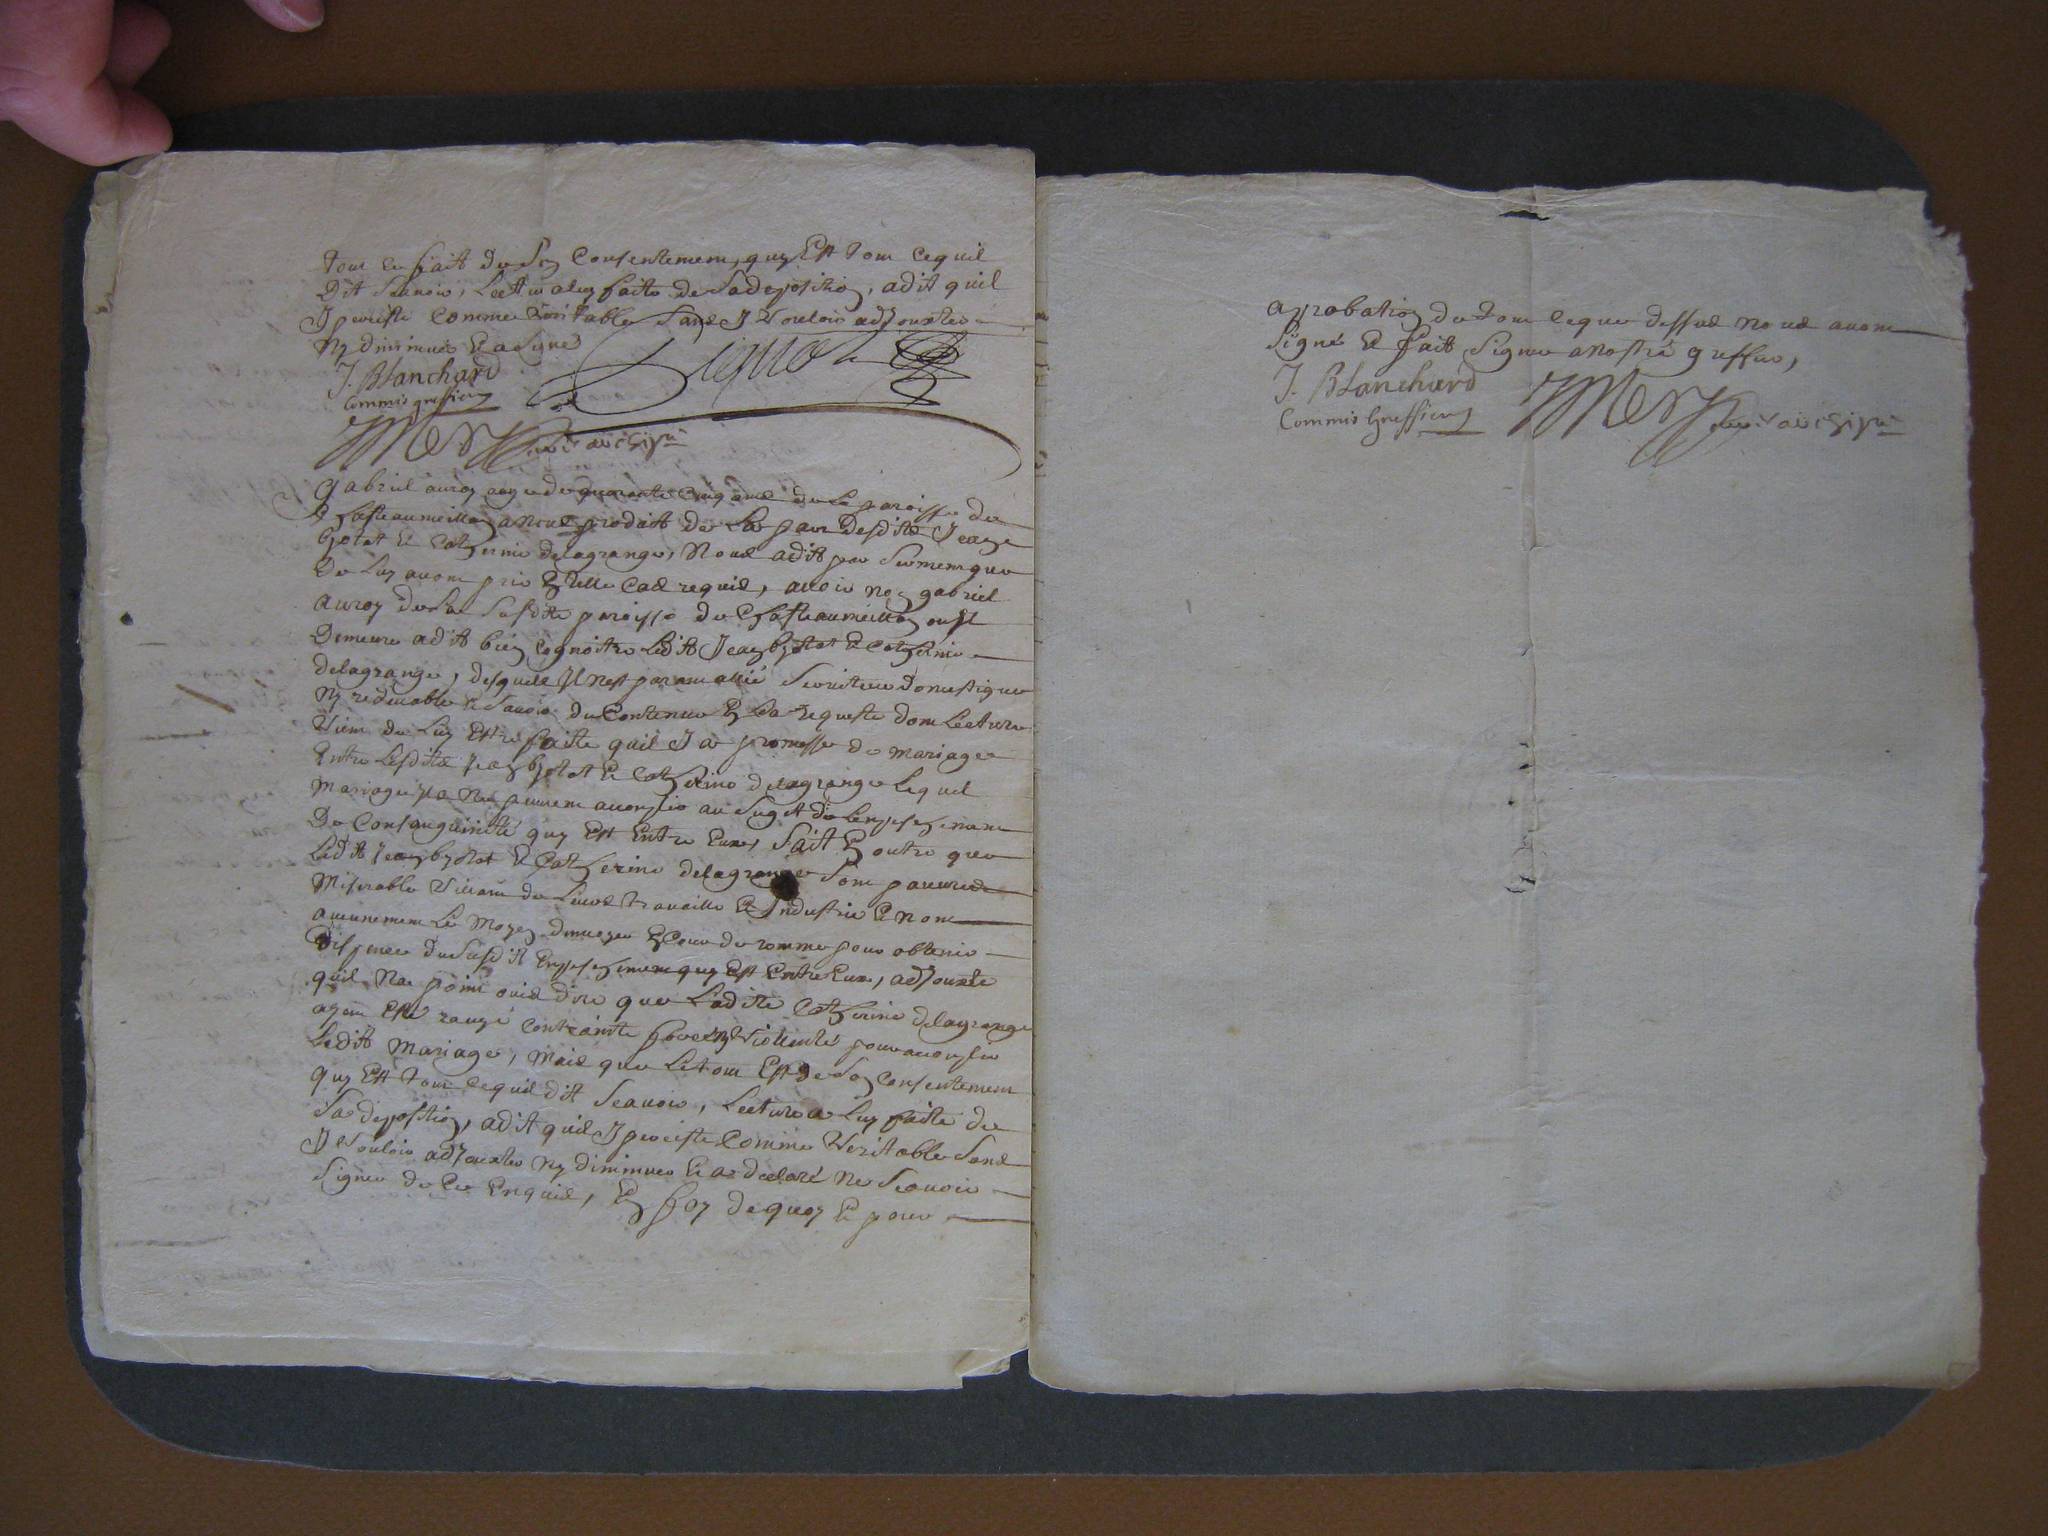 tout ce fait de son consentement, quy Est tout ce quil
Dit scauoir, Lecture a luy faite de sa deposition, a dit quil
J perciste comme veritable sans J vouloir adjouxter
Ny diminuer Et a signé
J. Blanchard
Commis greffier
Mery archipr
Gabriel auroy aagé de quarante cinq ans de La paroisse de
Chasteaumeillan a nous produit de La part Desdits Jean
bjotat Et Catherine delagrange, Nous a dit par serment que
De Luy auons pris En telle Cas requis, auoir nom gabriel
auroy de La susdite paroisse de Chasteaumeillan ou Il
Demeure a dit bien cognoitre Ledit Jean bjotat Et Catherine
delagrange, desquels Il nest parant allié seruiteur Domestique
Ny redeuable Et scauoir du Contenu En La requeste dont Lecture
Vient de Luy Estre faite quil J a promesse de mariage
Entre Lesdits Jean bjotat Et Catherine delagrange Lequel
Mariage Ils Ne peuuent acomplir au suget de Lempeschement
De Consanguinité quy Est Entre Eux, sait En outre que
Ledit Jean bjotat Et Catherine delagrange sont pauures
Miserable Viuant de Leurs trauaille Et Industrie Et nont
aucunement Le Moyen denuoyer En Cour de romme pour obtenir
Dispence du susdit Empeschement quy Est Entre Eux, adjouxte
quil Na point ouis dire que Ladite Catherine delagrange
ayent Esté rauye contrainte forcée Ny Viollenté pour acomplir
Ledit Mariage, Mais que Le tout Est de son consentement
quy Est tout ce quil dit scauoir, Lecture a Luy faite de
sa deposition, a dit quil J perciste comme Veritable sans
J vouloir adjouxter Ny diminuer Et a declaré Ne scauoir
signer de Ce Enquis, En foy de quoy Et pour
aprobation de tout ce que dessus nous auons
signé Et fait signer a nostre greffier,
J. Blanchard
Commis Greffier
Mery archipr